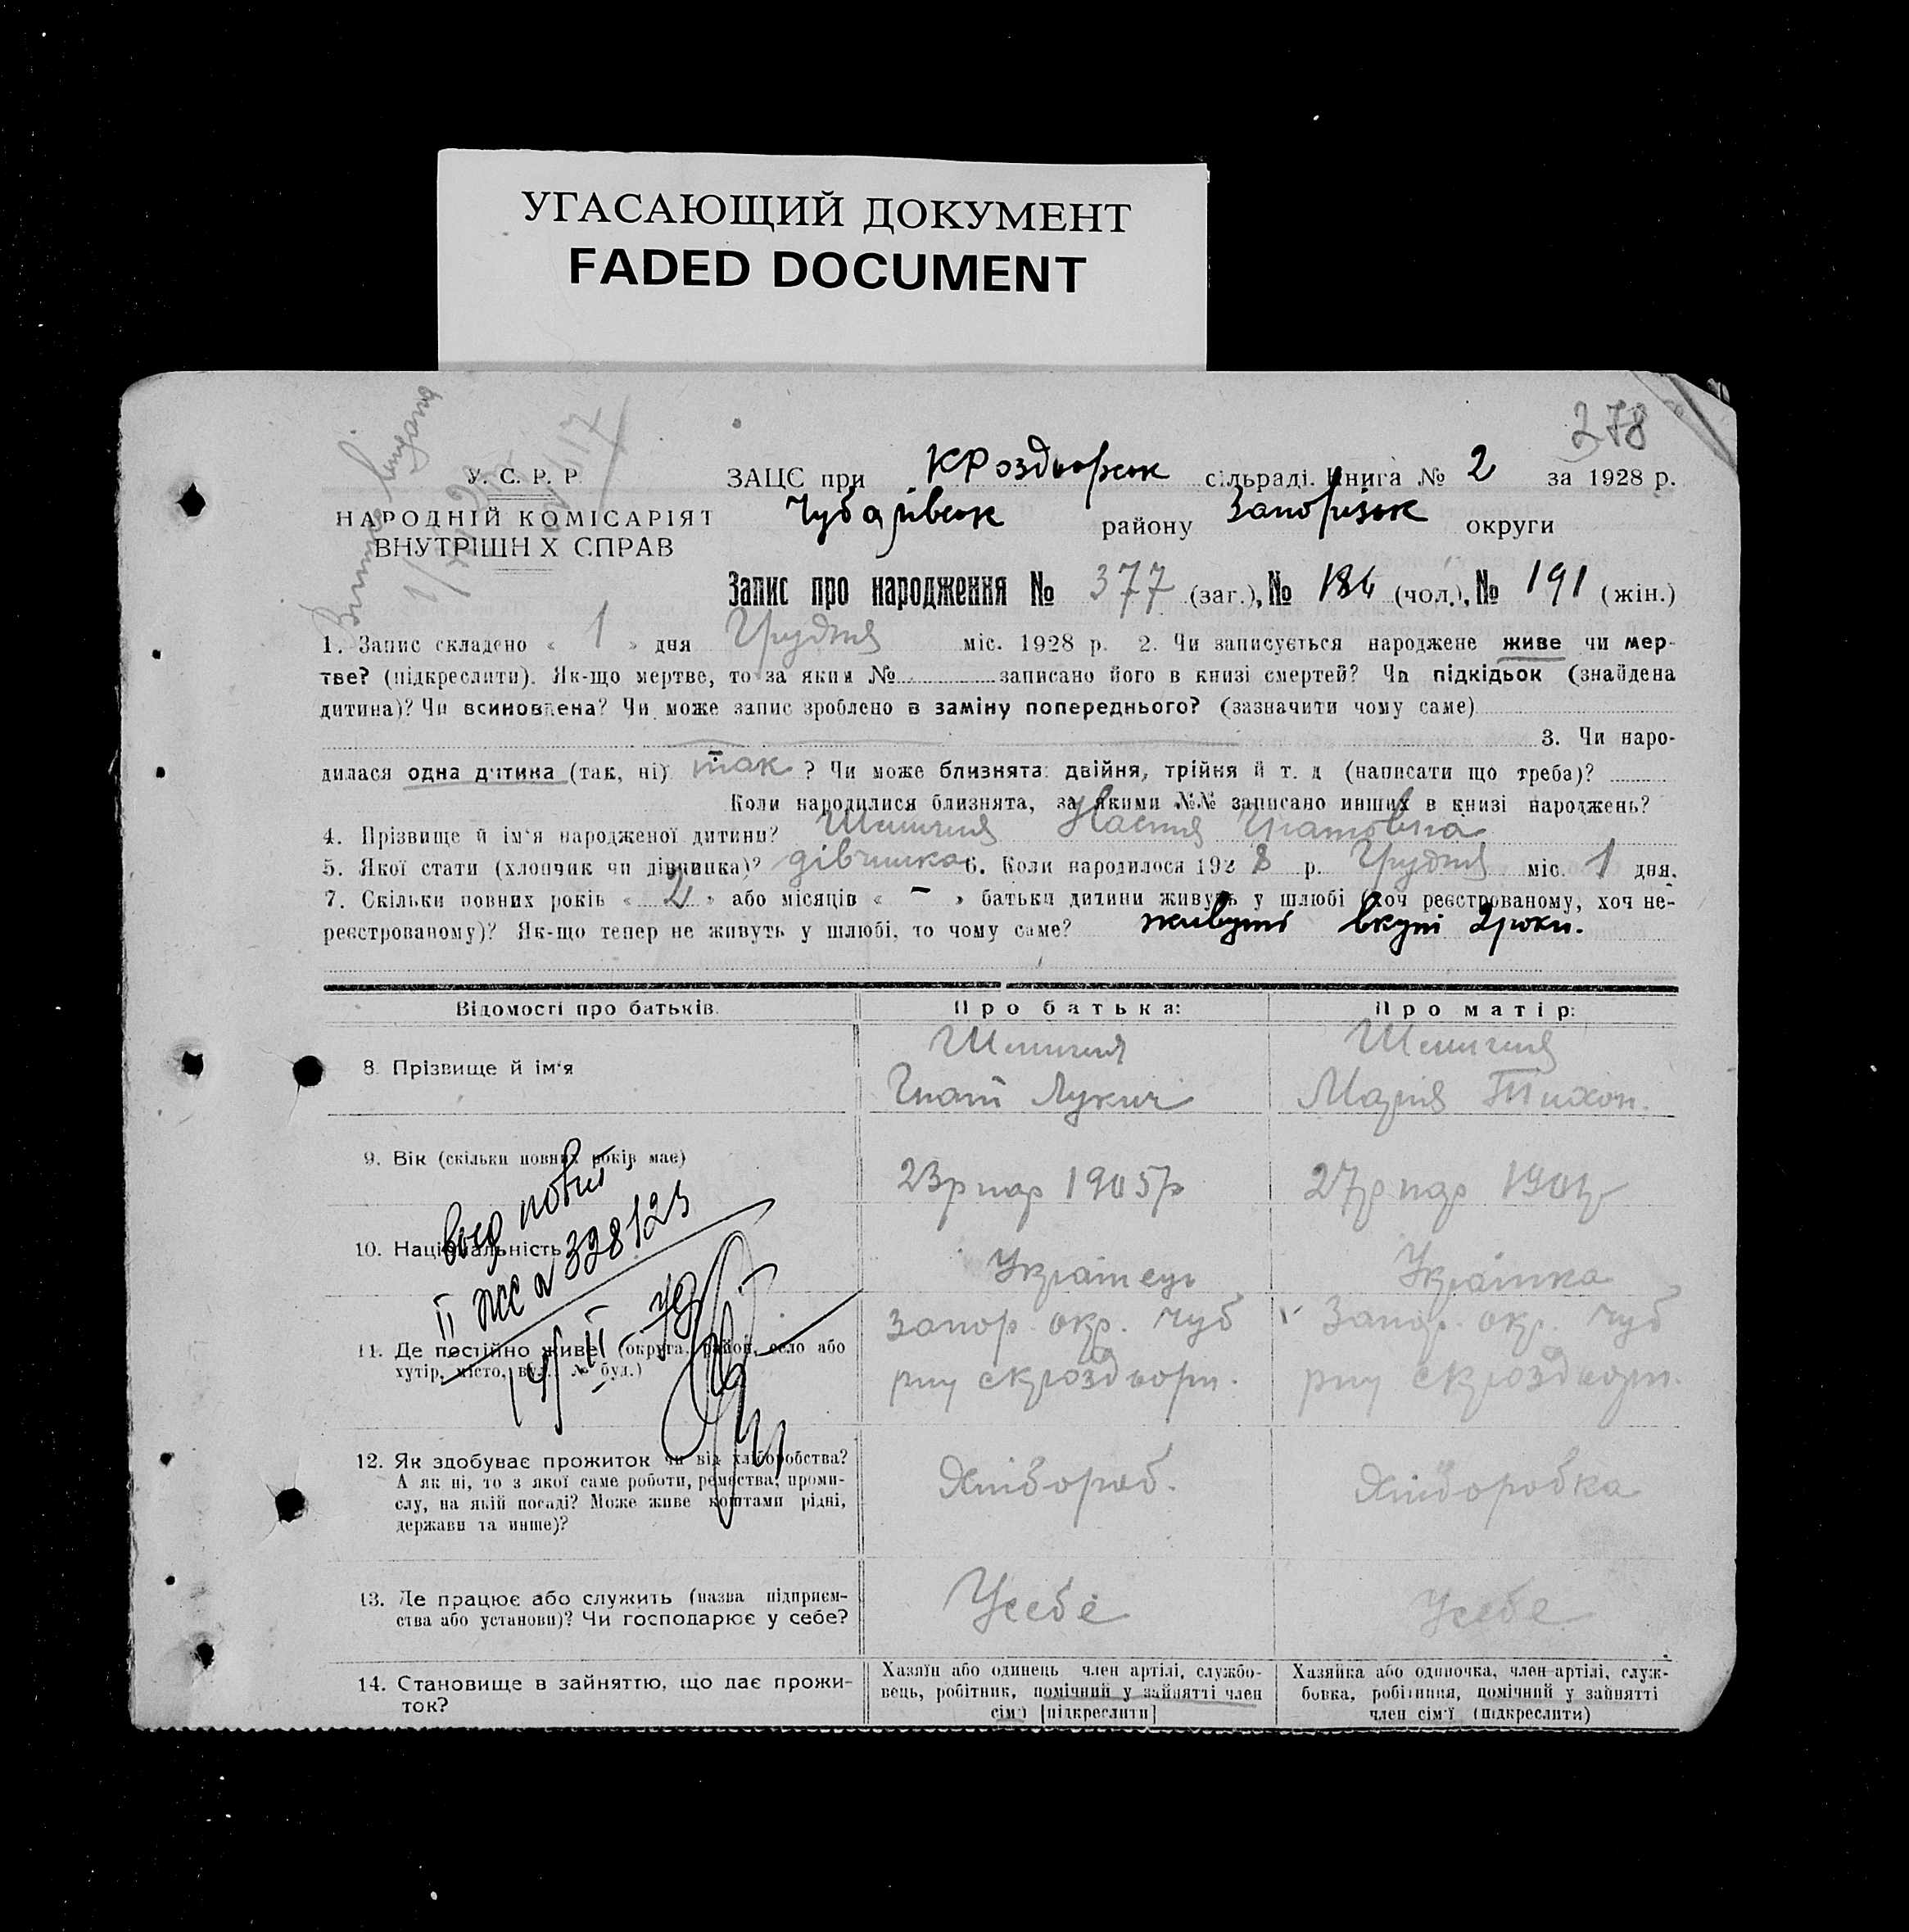 УГАСАЮЩИЙ ДОКУМЕНТ
FADED DOCUMENT
278
У. С. Р. Р.
НАРОДНІЙ КОМІСАРІЯТ
ВНУТРІШН Х СПРАВ
ЗАЦС при КРоздорськ сільраді. Книга № 2 за 1928 р.
Чубарівськ району Запорізьк округи
Запис про народження № 377 (заг.), № 186 (чол.), № 191 (жін.)
1. Запис складено « 1 » дня Грудня міс. 1928 р. 2. Чи записується народжене живе чи мер-
тве? (підкреслити). Як-що мертве, то за яким № записано його в книзі смертей? Чи підкідьок (знайдена
дитина)? Чи всиновлена? Чи може запис зроблено в заміну попереднього? (зазначити чому саме)
3. Чи наро-
дилася одна дитина (так, ні) так ? Чи може близнята: двійня, трійня й т. д (написати що треба)?
Коли народилися близнята, за якими №№ записано инших в книзі народжень?
4. Прізвище й ім'я народженої дитини? Настя Гнатовна
5. Якої стати (хлопчик чи дівчинка)? дівчинка 6. Коли народилося 1928 р. Грудня міс. 1 дня.
7. Скільки повних років « 2 » або місяців « – » батьки дитини живуть у шлюбі (хоч реєстрованому, хоч не-
реєстрованому)? Як-що тепер не живуть у шлюбі, то чому саме? живуть вкупі 2 роки.
Відомості про батьків. Про батька: Про матір:
8. Прізвище й ім'я
Гнат Лукич Марія Тихон.
9. Вік (скільки повних років має) 23р нар 1905р 27р нар 1901р
10. Національність Українець Українка
11. Де постійно живе (округа, район, село або
хутір, місто, вул., № буд.)
Запор. окр. Чуб Запор. окр. Чуб
рну скроздори. рну скроздори.
II ЖС № 328123
12. Як здобуває прожиток чи від хліборобства?
А як ні, то з якої саме роботи, ремества, проми-
слу, на якій посаді? Може живе коштами рідні,
держави та инше)?
Хлібороб. Хліборобка
13. Де працює або служить (назва підприєм-
ства або установи)? Чи господарює у себе?
Усебе Усебе
14. Становище в зайняттю, що дає прожи-
ток?
Хазяїн або одинець член артілі, службо-
вець, робітник, помічний у зайнятті член
сім'ї [підкреслити]
Хазяйка або одиночка, член артілі, служ-
бовка, робітниця, помічний у зайнятті
член сім'ї (підкреслити)